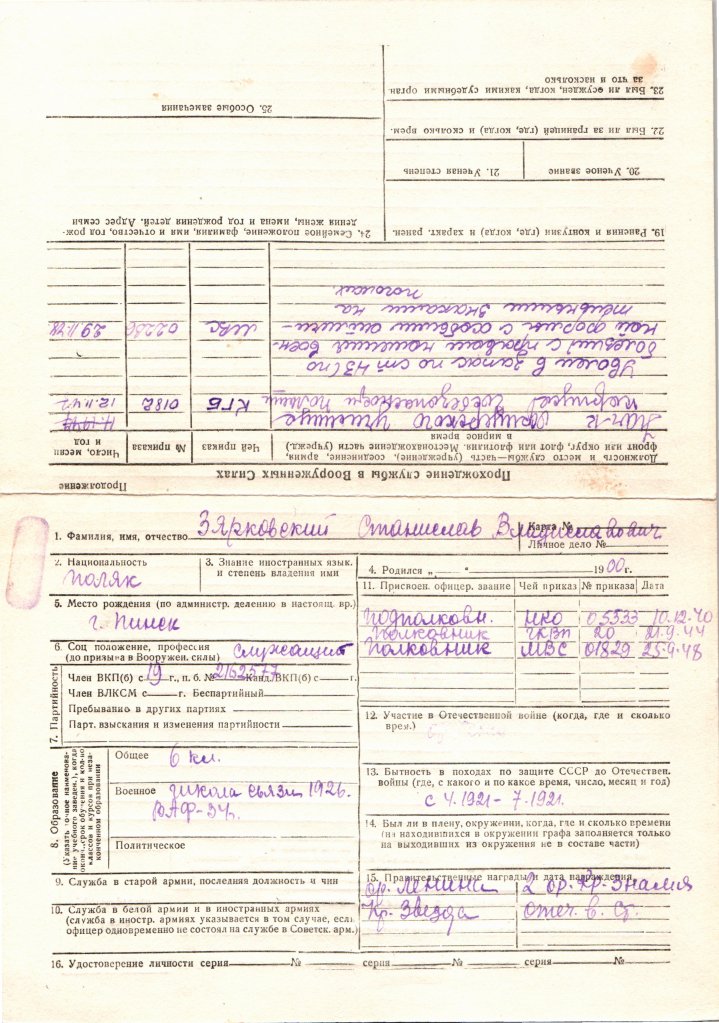 23. Был ли осужден, когда, какими судебными орган.
за что и насколько
22. Был ли за границей (где, когда) и сколько врем.
20. Ученое звание
21. Ученая степень
19. Ранения и контузии (где, когда) и характ. ранен.
25. Особые замечания
24. Семейное положение, фамилия, имя и отчество, год рож-
дения жены, имена и год рождения детей. Адрес семьи
Продолжение
Прохождение службы в Вооруженных Силах
Должность и место службы—часть (учрежден), соединение, армия,
фронт или округ, флот или флотилия. Местонахождение части (учрежд.)
в мирное время
Чей приказ
№ приказа
Число, месяц
и год
Нач-к офицерского училища
корпуса Госбезопасности Польши
КГБ
0182
12.11.47
Уволен в запас по ст 43 (по
болезни) с правом ношения воен-
ной формы с особыми отличи-
тельными знаками на
погонах.
МВС
02230
29.11.48
1. Фамилия, имя, отчество Зярковский Станислав Владиславович
Карта №
Личное дело №
2. Национальность
поляк
3. Знание иностранных язык.
и степень владения ими
4. Родился „ “ 1900 г.
5. Место рождения (по администр. делению в настоящ. вр.)
г. Пинск
6. Соц положение, профессия
(до призыва в Вооружен. силы)
служащий
7. Партийность
Член ВКП(б) с 19 г., п. б. № 2162577 Канд. ВКП(б) с г.
Член ВЛКСМ с г. Беспартийный
Пребывание в других партиях
Парт. взыскания и изменения партийности
8. Образование
(Указать точное наименова-
ние учебного заведен.), когда
оконч., срок обучения и кол-во
классов и курсов при неза-
конченном образовании
Общее 6 кл.
Военное школа связи 1926.
ВАФ-34г.
Политическое
9. Служба в старой армии, последняя должность и чин
10. Служба в белой армии и в иностранных армиях
(служба в иностр. армиях указывается в том случае, если
офицер одновременно не состоял на службе в Советск. арм.)
11. Присвоен. офицер. звание
Чей приказ
№ приказа
Дата
Подполковн. НКО 05533 10.12.40
Полковник ГКВП 20 21.9.44
Полковник МВС 01829 25.9.48
12. Участие в Отечественной войне (когда, где и сколько
врем.)
13. Бытность в походах по защите СССР до Отечествен.
войны (где, с какого и по какое время, число, месяц и год)
с 4.1921 - 7.1921.
14. Был ли в плену, окружении, когда, где и сколько времени
(на находившихся в окружении графа заполняется только
на выходивших из окружения не в составе части)
15. Правительственные награды и дата награждения
Ор. Ленина 2 ор. Кр. Знамя
Кр. Звезда Отеч. в. Ст.
16. Удостоверение личности серия № серия № серия №